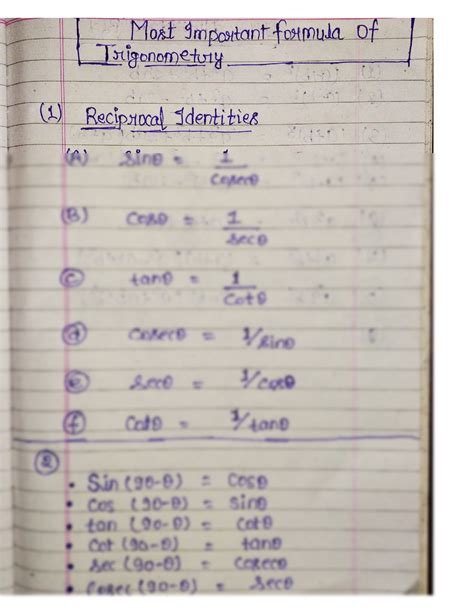 Most Important formula of
Trigonometry
(1) Reciprocal Identities
(A) sinθ = 1/cosecθ
(B) cosθ = 1/secθ
(c) tanθ = 1/cotθ
(d) cosecθ = 1/sinθ
(e) secθ = 1/cosθ
(f) cotθ = 1/tanθ
(2)
• Sin (90-θ) = cosθ
• cos (90-θ) = sinθ
• tan (90-θ) = cotθ
• cot (90-θ) = tanθ
• sec (90-θ) = cosecθ
• cosec (90-θ) = secθ